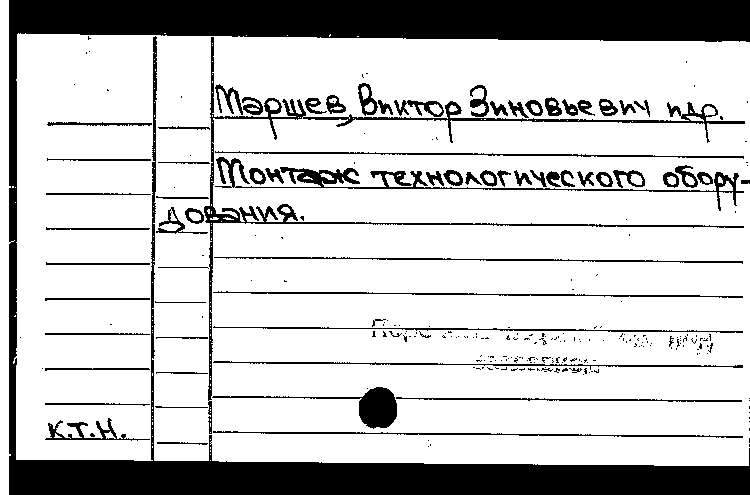 Маршев, Виктор Зиновьевич и др.
Монтаж технологического обору-
дования.
К.Т.Н.